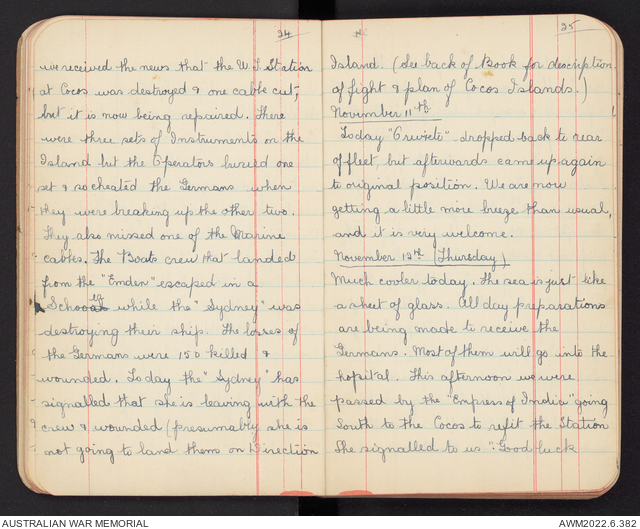 24
we received the news that the W.T. Station
at Cocos was destroyed & one cable cut,
but it is now being repaired. There
were three sets of Instruments on the
Island but the Operators buried one
set & so cheated the Germans when
they were breaking up the other two.
They also missed one of the Marine
cables. The Boats crew that landed
from the "Emden" escaped in a
while the "Sydney" was
destroying their ship. The losses of
the Germans were 150 killed &
wounded. Today the "Sydney" has
signalled that she is leaving with the
crew & wounded (presumably she is
not going to land them on Direction
25
Island. (See back of Book for description
of fight & plan of Cocos Islands.)
November 11th
Today "Orvieto" dropped back to rear
of fleet, but afterwards came up again
to original position. We are now
getting a little more breeze than usual,
and it is very welcome.
November 12th (Thursday)
Much cooler today. The sea is just like
a sheet of glass. All day preparations
are being made to receive the
Germans. Most of them will go into the
hospital. This afternoon we were
passed by the "Empress of India" going
South to the Cocos to refit the Station
She signalled to us "Good luck
AUSTRALIAN WAR MEMORIAL
AWM2022.6.382